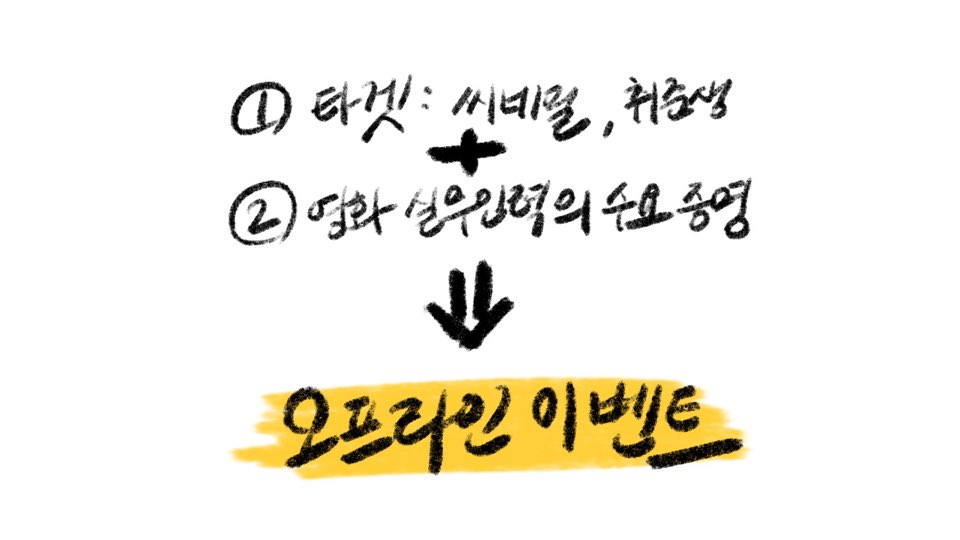 ① 타겟: 씨네필, 취준생
+
② 영화 실무인력의 수요 증명
오프라인 이벤트